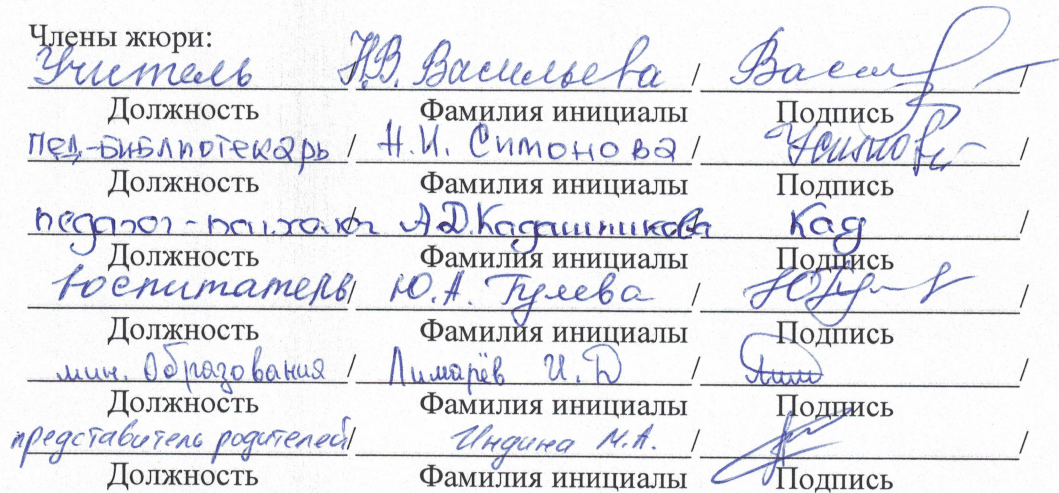 Члены жюри:
Учитель Н.В. Васильева / Васил /
Должность Фамилия инициалы Подпись
пед-библиотекарь / Н.И. Симонова / /
Должность Фамилия инициалы Подпись
педагог-психолог А.Д.Кадашникова Кад /
Должность Фамилия инициалы Подпись
воспитатель / Ю.А. Гулева / /
Должность Фамилия инициалы Подпись
мин. Образования / Лимарёв И.Д / /
Должность Фамилия инициалы Подпись
представитель родителей / Индина М.А. / /
Должность Фамилия инициалы Подпись